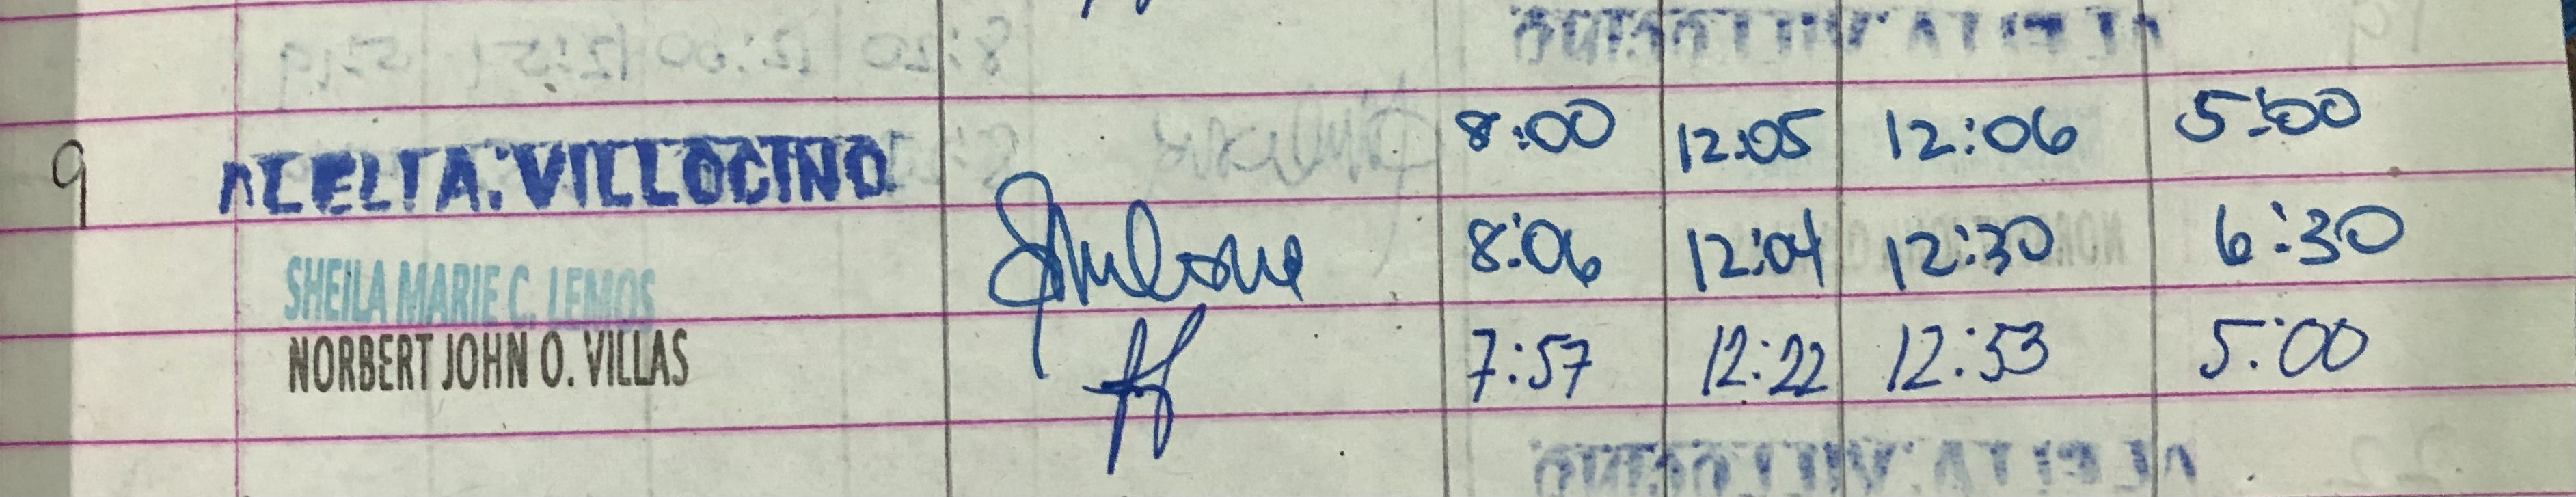 9 ALELI A. VILLOCINO 8:00 12:05 12:06 5:00
SHEILA MARIE C. LEMOS 8:06 12:04 12:30 6:30
NORBERT JOHN O. VILLAS 7:57 12:22 12:53 5:00